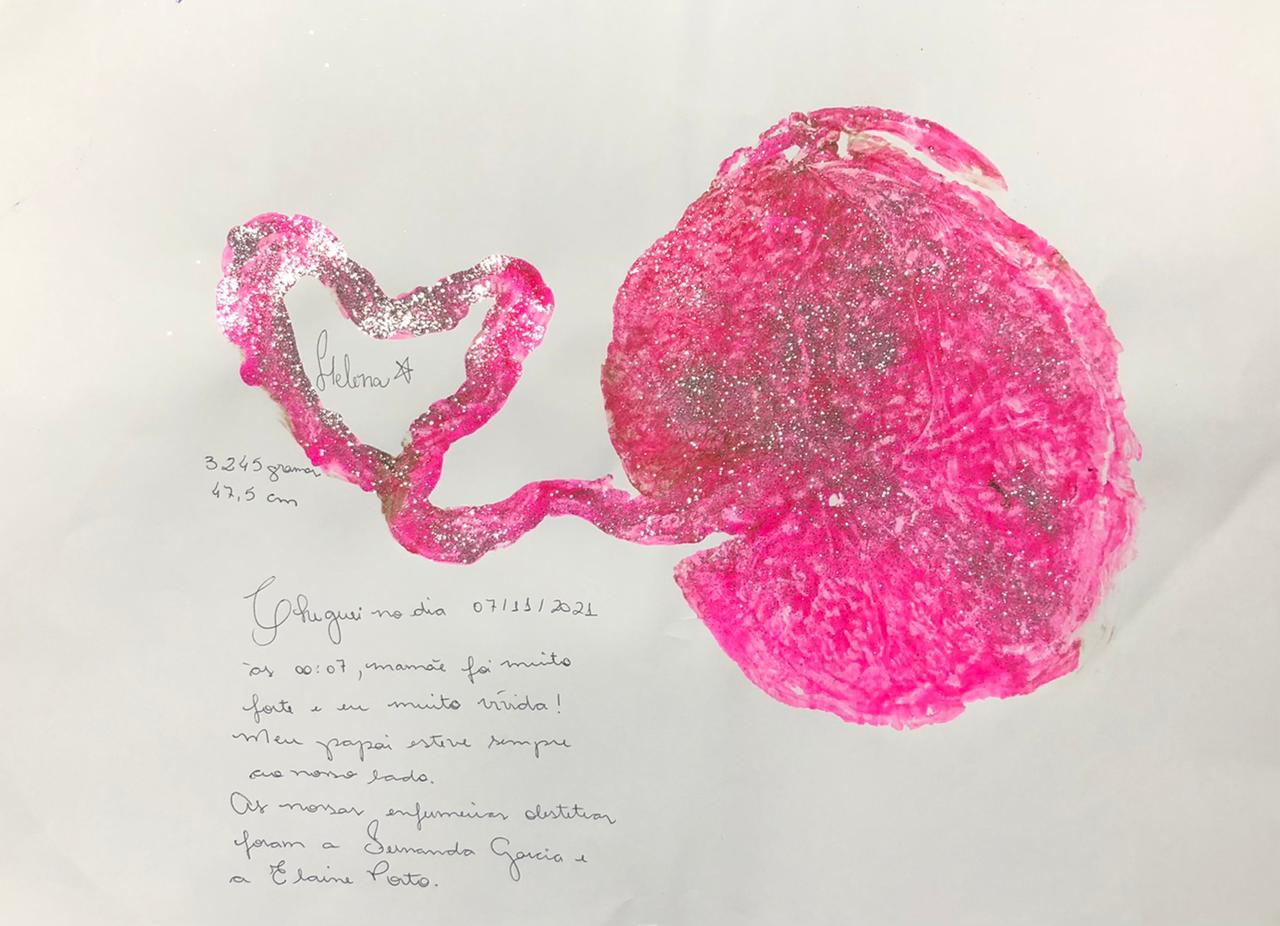 Helena
3245 gramas
47,5 cm
Cheguei no dia 07/11/2021
às 00:07, mamãe foi muito
forte e eu muito vívida!
Meu papai esteve sempre
ao nosso lado.
As nossas enfermeiras obstetras
foram a Fernanda Garcia e
a Elaine Porto.